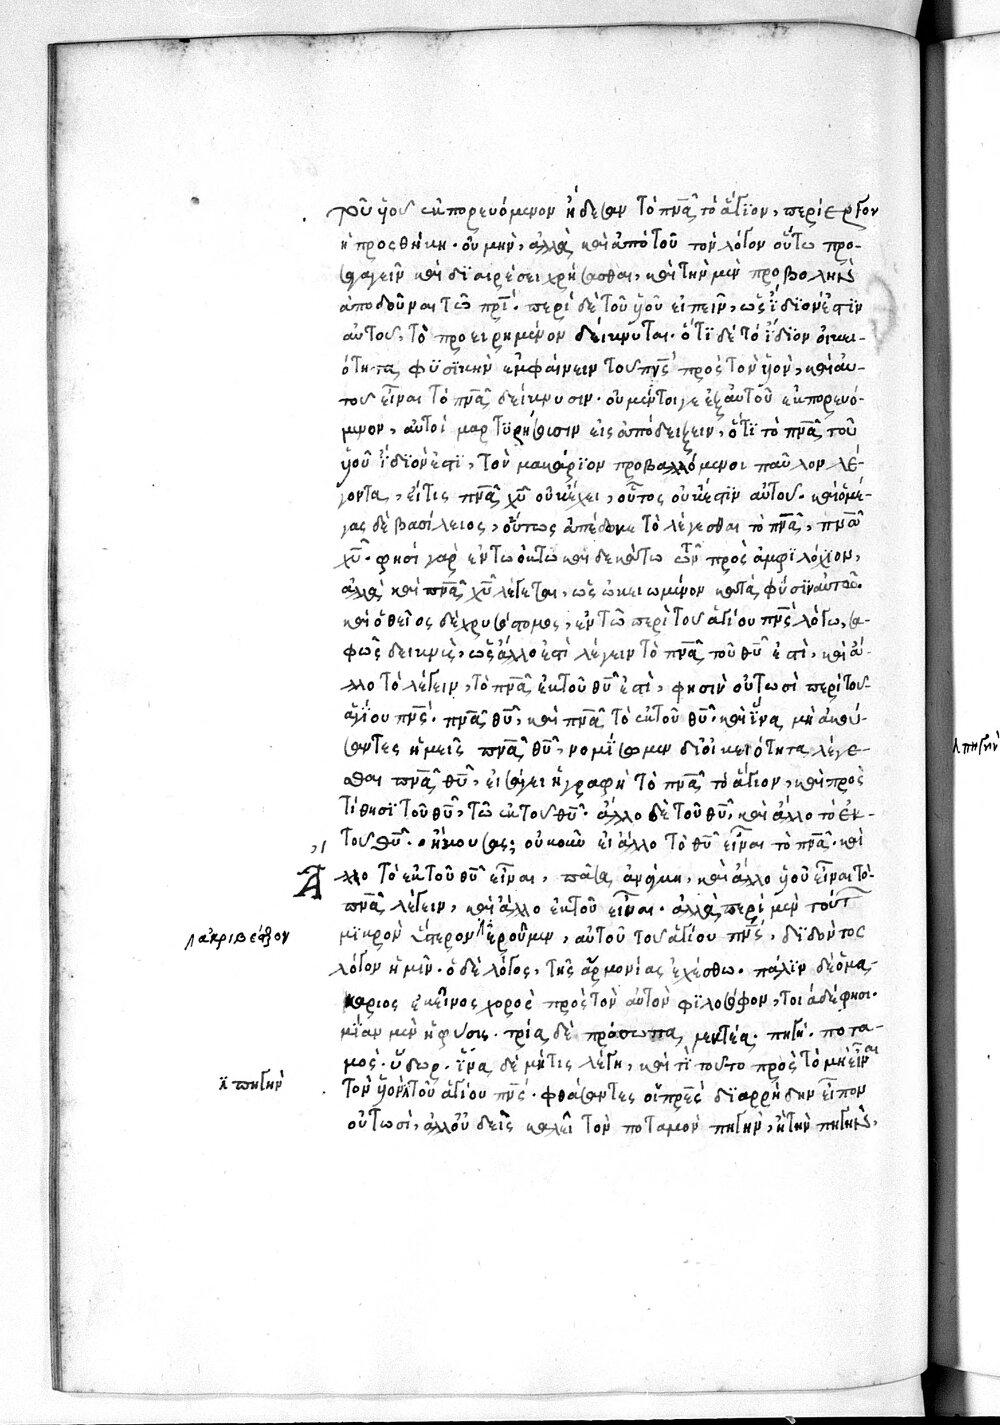 ἐκπορευόμενον ᾔδεσαν τὸ πνᾶ τὸ ἅγιον, περίεργον
ἡ προσθήκη. οὐ μὴν, ἀλλὰ καὶ ἀπὸ τοῦ τὸν λόγον οὕτω προ-
σαγαγεῖν καὶ διαιρέσει χρήσασθαι, καὶ τὴν μὲν προβολὴν
ἀποδοῦναι τῶ πρὶ. περὶ δὲ τοῦ ὑοῦ εἰπεῖν, ὡς ἴδιόν ἐστιν
αὐτοῦ, τὸ προειρημένον δείκνυται. ὅτι δὲ τὸ ἴδιον οἰκει-
ότητα φυσικὴν ἐμφαίνειν τοῦ πνς πρὸς τὸν ὑὸν, καὶ αὐ-
τοῦ εἶναι τὸ πνᾶ δείκνυσιν. οὐ μέντοιγε ἐξ αὐτοῦ ἐκπορευό-
μενον, αὐτοὶ μαρτυρήσουσιν εἰς ἀπόδειξιν, ὅτι τὸ πνᾶ τοῦ
ὑοῦ ἴδιόν ἐστι, τὸν μακάριον προβαλλόμενοι παῦλον λέ-
γοντα, εἴ τις πνᾶ χῦ οὐκ ἔχει, οὗτος οὐκ ἔστιν αὐτοῦ. καὶ ὁ μέ-
γας δὲ βασίλειος, οὕτως ἀπέδωκε τὸ λέγεσθαι τὸ πνᾶ, πνᾶ
χῦ. φησὶ γὰρ ἐν τῶ ὀκτωκαιδεκάτω τῶν πρὸς ἀμφιλόχιον,
ἀλλὰ καὶ πνᾶ χῦ λέγεται, ὡς ὠκειωμένον κατὰ φύσιν αὐτῶ.
καὶ ὁ θεῖος δὲ χρυσόστομος, ἐν τῶ περὶ τοῦ ἁγίου πνς λόγω, σα-
φῶς δεικνὺς, ὡς ἄλλο ἐστὶ λέγειν τὸ πνᾶ τοῦ θῦ ἐστὶ, καὶ ἄ-
λλο τὸ λέγειν, τὸ πνᾶ ἐκ τοῦ θῦ ἐστὶ, φησὶν οὑτωσὶ περὶ τοῦ
ἁγίου πνς. πνᾶ θῦ, καὶ πνᾶ τὸ ἐκ τοῦ θῦ. καὶ ἵνα μὴ ἀκού-
σαντες ἡμεῖς πνᾶ θῦ, νομίσωμεν δι' οἰκειότητα λέγε-
σθαι πνᾶ θῦ, εἰσάγει ἡ γραφὴ τὸ πνᾶ τὸ ἅγιον, καὶ προσ
τίθησι τοῦ θῦ, τῶ ἐκ τοῦ θῦ. ἄλλο δὲ τοῦ θῦ, καὶ ἄλλο τὸ ἐκ
τοῦ θῦ. ὁ ἤκουσας; οὐκοῦν εἰ ἄλλο τὸ θῦ εἶναι τὸ πνᾶ. καὶ
ἄλλο τὸ ἐκ τοῦ θῦ εἶναι, πᾶσα ἀνάγκη, καὶ ἄλλο ὑοῦ εἶναι τὸ
πνᾶ λέγειν, καὶ ἄλλο ἐκ τοῦ εἶναι. ἀλλὰ περὶ μὲν
μικρὸν ὕστερον ἐροῦμεν, αὐτοῦ τοῦ ἁγίου πνς, διδόντος
ἀκριβέστερον
λόγον ἡμῖν. ὁ δὲ λόγος, τῆς ἁρμονίας ἐχέσθω. πάλιν δὲ ὁ μα-
κάριος ἐκεῖνος χορὸς πρὸς τὸν αὐτὸν φιλόσοφον, τοιάδέ φησι.
μίαν μὲν ἡ φύσις. τρία δὲ πρόσωπα πηγὴ. ποτα-
μὸς. ὕδωρ. ἵνα δὲ μήτις λέγη, καὶ τί τοῦτο πρὸς τὸ μὴ εἶναι
τὸν ὑὸν τοῦ ἁγίου πνς. φθάσαντες οἱ πρες διαρρήδην εἶπον
πηγὴν
οὑτωσὶ, ἀλλ' οὐδεὶς καλεῖ τὸν ποταμὸν πηγὴν, ἢ τὴν πηγὴν,
πηγὴν